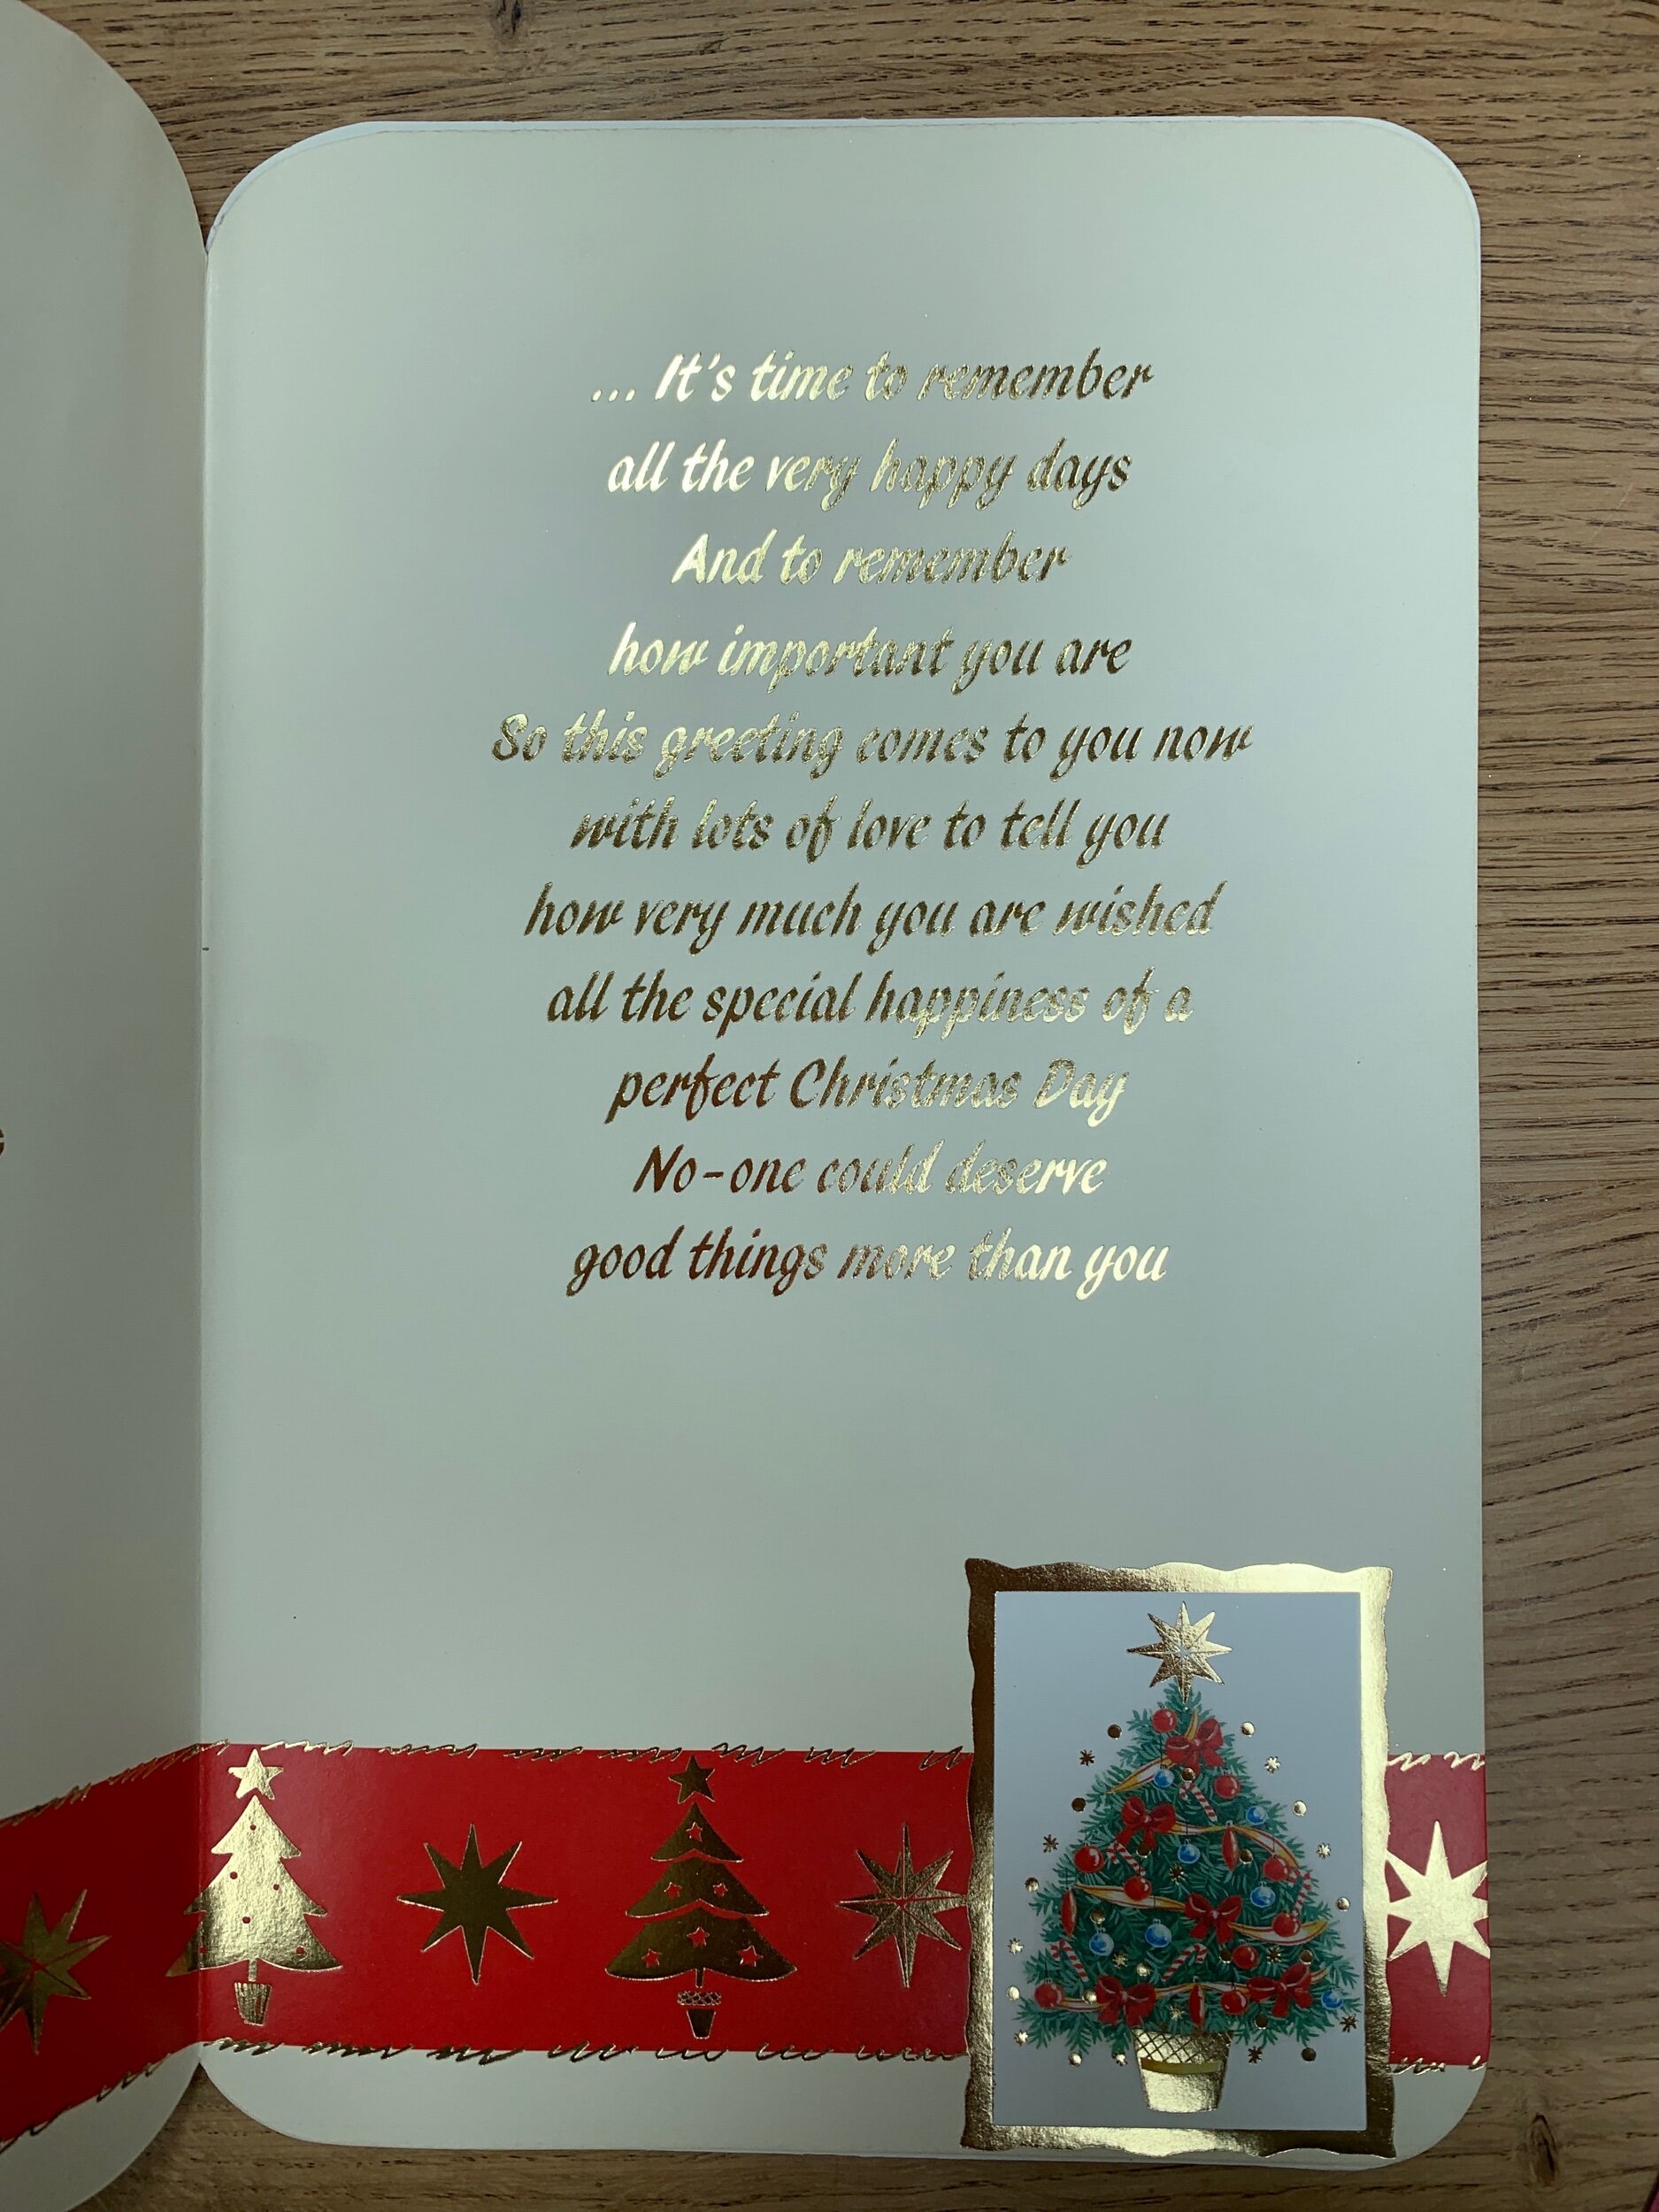 ... It's time to remember
all the very happy days
And to remember
how important you are
So this greeting comes to you now
with lots of love to tell you
how very much you are wished
all the special happiness of a
perfect Christmas Day
No-one could deserve
good things more than you